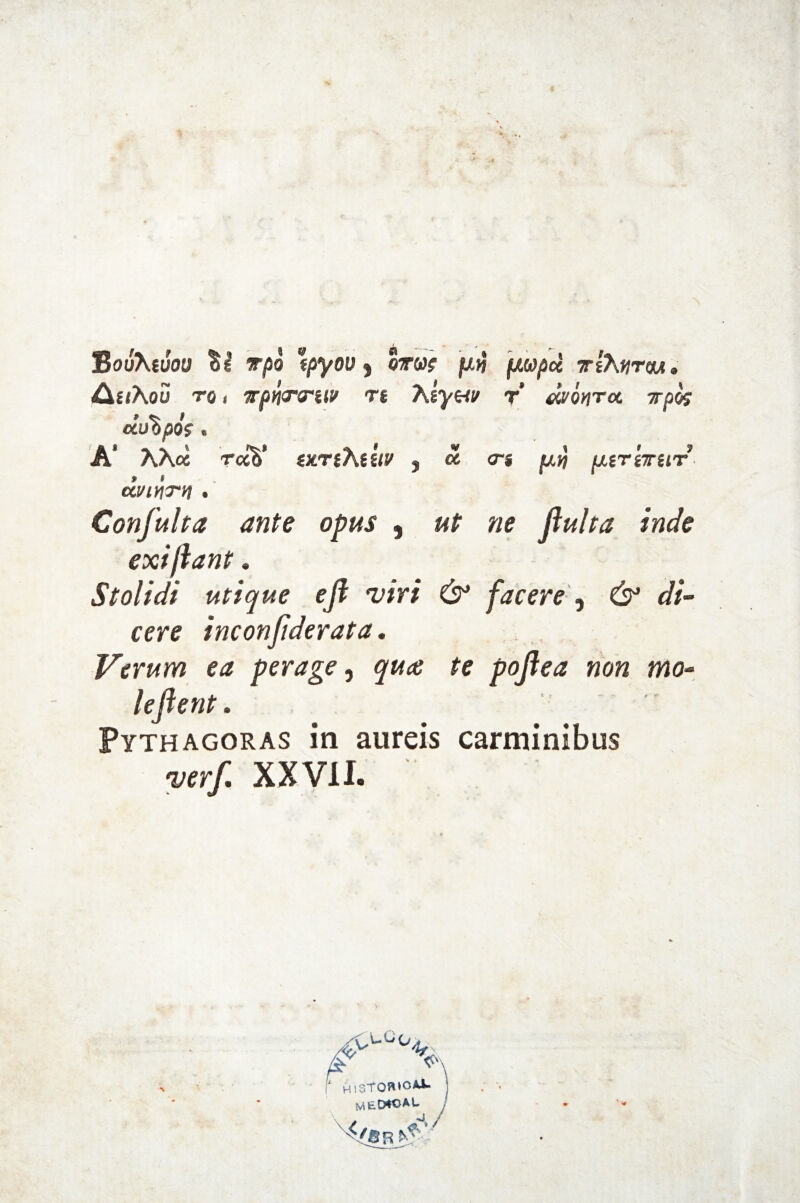 Βουλεύου δὲ πρὸ ἔργου, ὅπως μὴ μωρὰ πέληται.
Δειλοῦ τοι πρήσσειν τε λέγειν τ' ἀνόητα πρὸς
ἀυδρός.
Α' λλὰ τάδ' εκτελέειν, ἅ σε μὴ μετέπειτ'
ἀνιήση.
Conſulta ante opus, ut ne ſtulta inde
exiſtant.
Stolidi utique eſt viri & facere, & di-
cere inconſiderata.
Verum ea perage, quæ te poſtea non mo-
leſtent.
PYTHAGORAS in aureis carminibus
verſ. XXVII.
WELLCOME
HISTORICAL
MEDICAL
LIBRARY